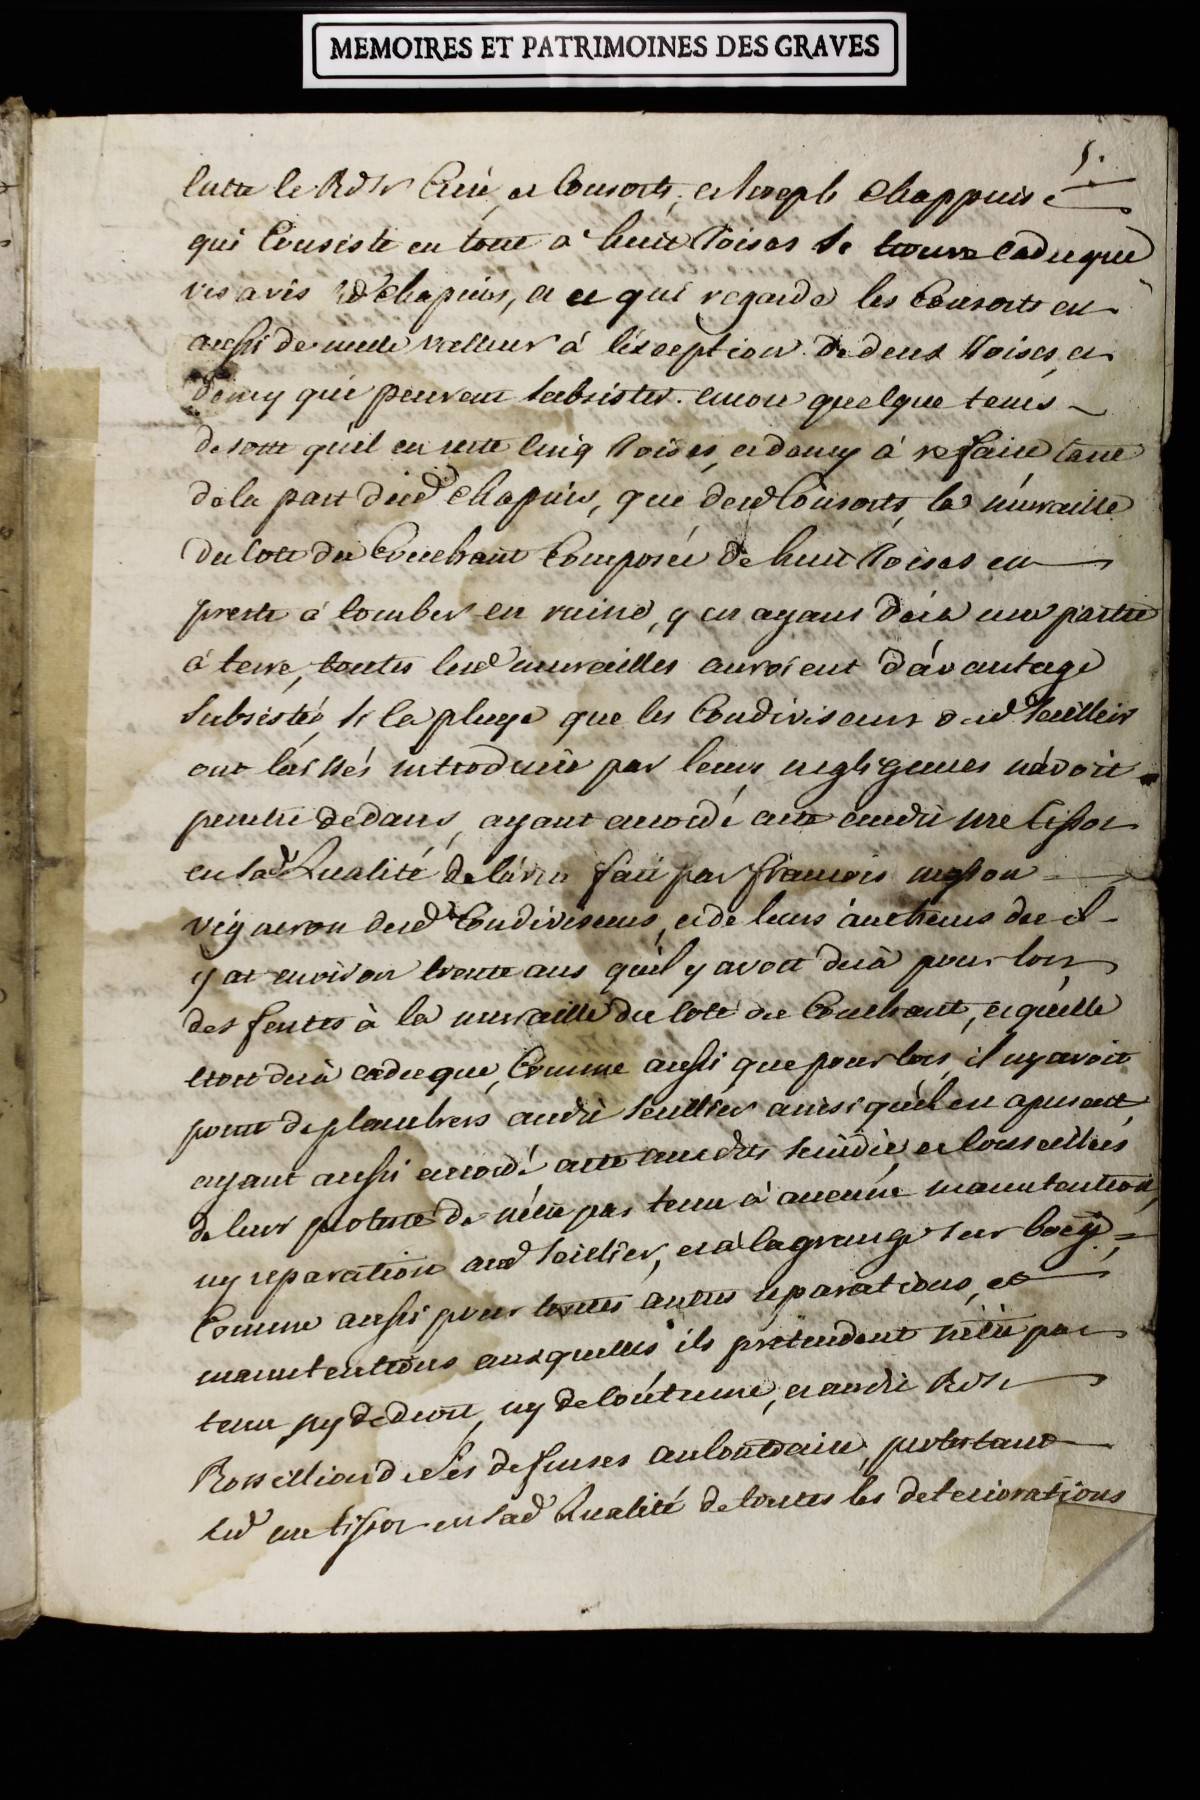 MEMOIRES ET PATRIMOINES DES GRAVES
5.
lutte le Rd Sr Curé, et Consorts, et Joseph Chappuis
qui Consiste en tout a huit Toises se trouve caduque
vis avis dud Chapuis, et ce qui regarde les Consorts est
aussi de nulle valleur à léxception de deux Toises, et
demy qui peuvent subsister encore quelque tems
de sorte quil en reste cinq Toises, et demy à refaire tant
de la part dud Chapuis, que desd Consorts, la muraille
du Coté du Couchant Composée de huit Toises est
preste à tomber en ruine, y en ayant déja une partie
à terre, toutes lesd murailles auroient dávantage
subsistés, si la pluye que les Condiviseurs dud Seillier
ont laissés introduire par leurs negligences návoit
penetré dedans, ayant accordé acte audit Me Tissot
en sad Qualité de láveu fait par françois
vigneron desd Condiviseurs, et de leurs autheurs de il
y at environ trente ans quil y avoit deja pour lors
des fentes à la muraille du Coté du Couchant, et quelle
etoit deja caduque, Comme aussi que pour lors, il ny avoit
point de planchers audit seillier ainsi quil en apresent,
ayant aussi accordé acte auxdits sindic, et Conseilliers
de leur proteste de nétre pas tenu à aucune manutention,
ny reparation aud seillier, et à la grange sur boëge,
Comme aussi pour toutes autres reparations, et
manutentions auxquelles ils prétendent nétre pas
tenu ny de droit, ny de Coutume, et audit Rd Sr
Rosselliond ses defenses au Contraire, protestant
led me tissot en sad Qualité de toutes les deteriorations